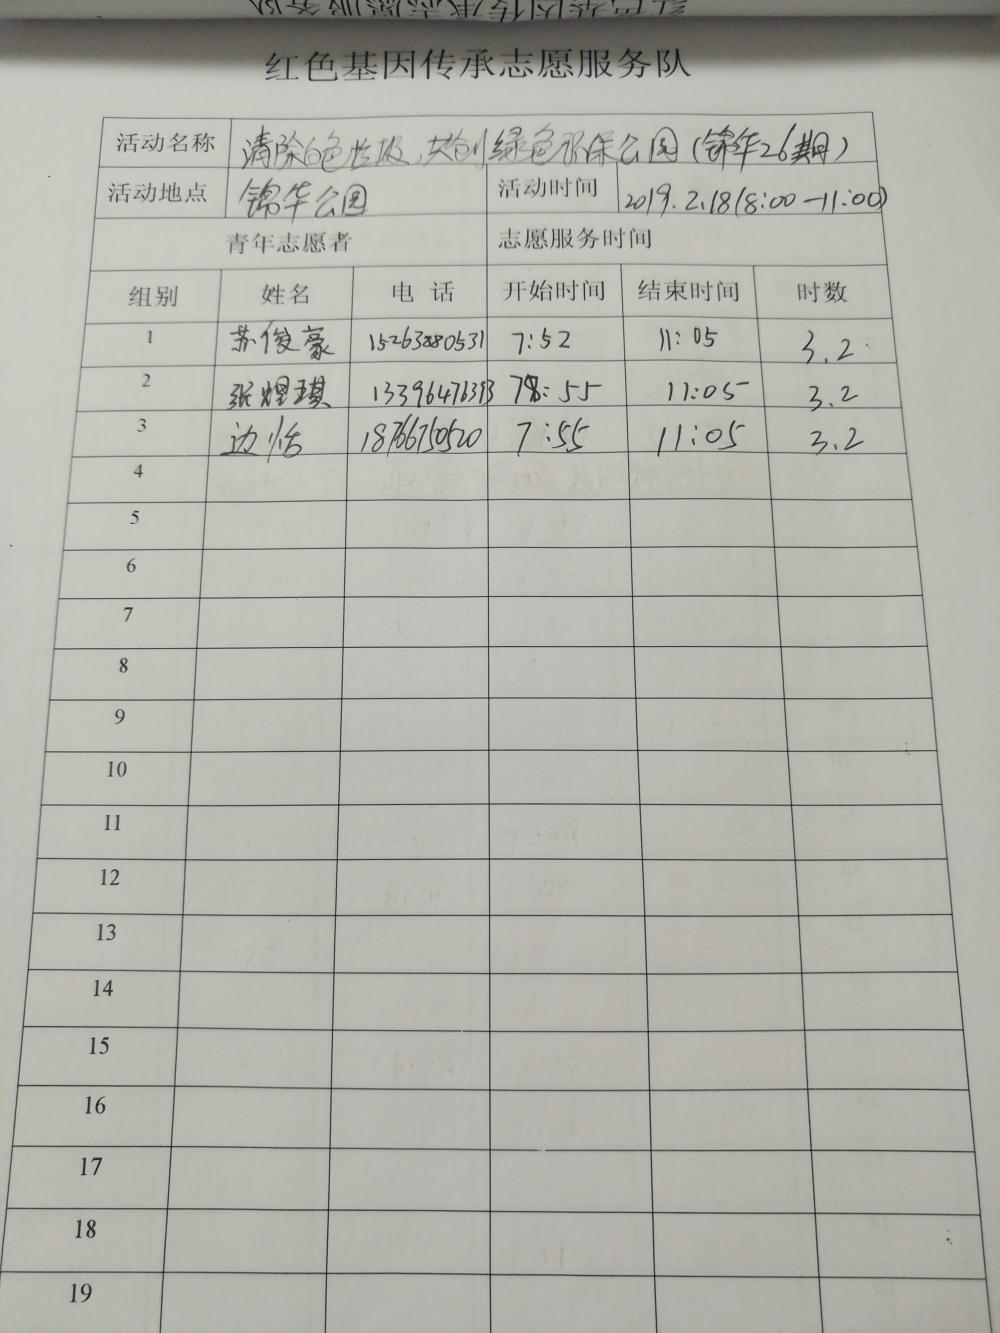 红色基因传承志愿服务队
红色基因传承志愿服务队
活动名称 清除白色垃圾,共创绿色环保公园(锦华26期)
活动地点 锦华公园 活动时间 2019.2.18(8:00-11:00)
青年志愿者 志愿服务时间
组别 姓名 电 话 开始时间 结束时间 时数
1 苏俊豪 15263880531 7:52 11:05 3.2
2 张煜琪 13396476393 7:55 11:05 3.2
3 边恬 18766750520 7:55 11:05 3.2
4
5
6
7
8
9
10
11
12
13
14
15
16
17
18
19